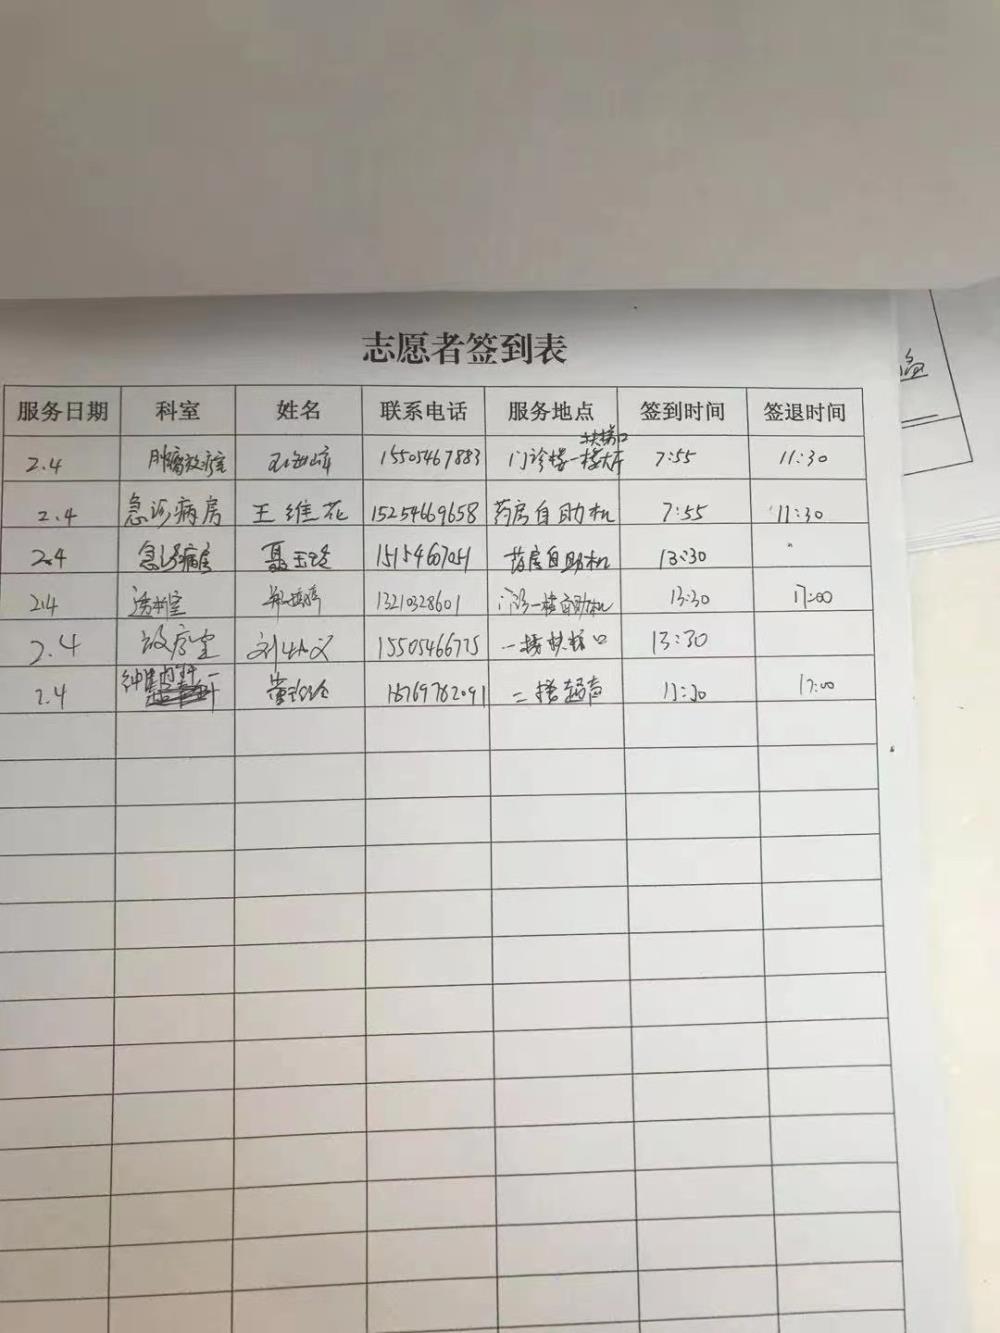 志愿者签到表
服务日期 科室 姓名 联系电话 服务地点 签到时间 签退时间
扶梯口
2.4 肿瘤放疗室 15505467883 门诊楼一楼大厅 7:55 11:30
2.4 急诊病房 王维花 15254669658 药房自助机 7:55 11:30
2.4 急诊病房 聂玉 药房自助机 13:30
2.4 透析室 13210328601 门诊一楼自助机 13:30 17:00
2.4 放疗室 15505466775 一楼扶梯口 13:30
神经内科一
2.4 18769762091 二楼超声 13:30 17:00